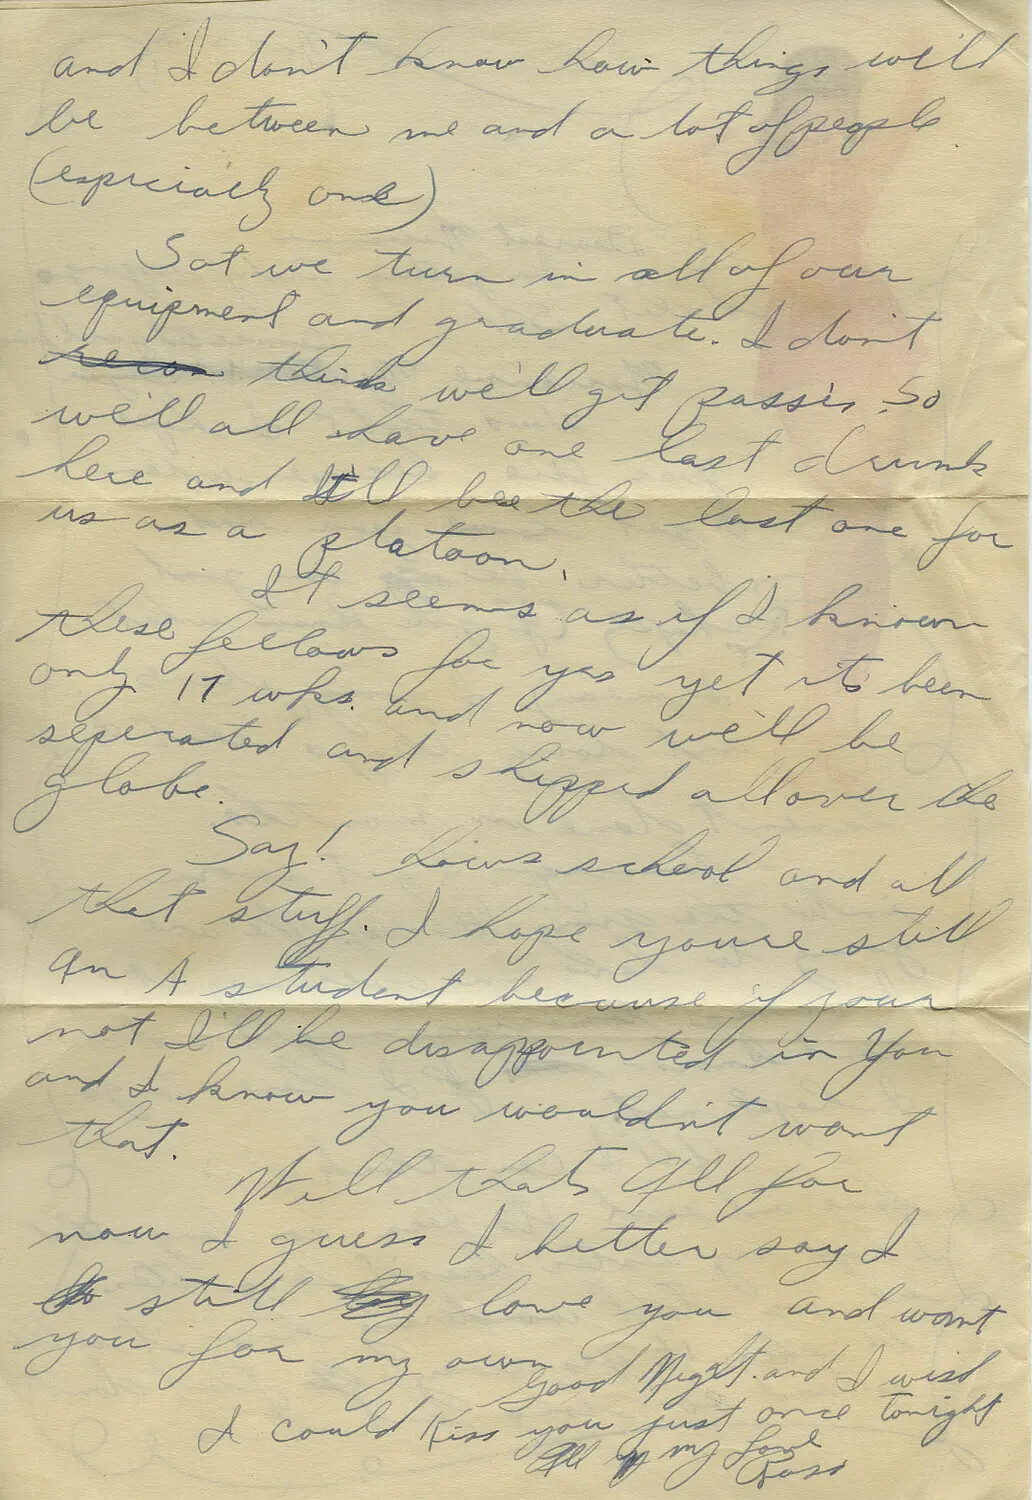 and I don't know how things will
be between me and a lot of people
(especially one)
Sat we turn in all of our
equipment and graduate. I don't
think we'll get passes. So
we'll all have one last drunk
here and It'll bee the last one for
us as a platoon.
It seems as if I known
these fellows for yrs yet its been
only 17 wks. and now we'll be
seperated and shipped all over the
globe.
Say! hows school and all
that stuff. I hope youre still
an A student because if your
not I'll be disappointed in You
and I know you wouldn't want
that.
Well thats All for
now I guess I better say I
still love you and want
you for my own
Good Night. and I wish
I could Kiss you just once tonight
All my Love
Russ